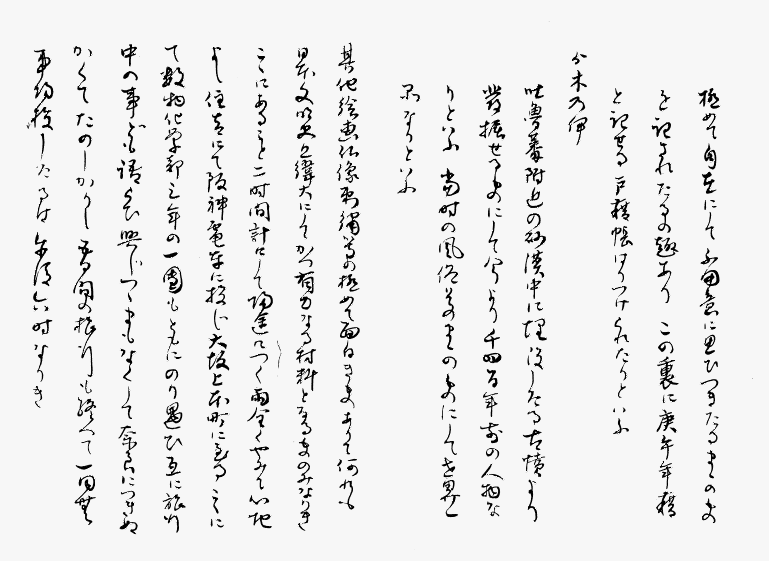 極めて自在にして不用意に思ひつきたるまゝの文
を記されたるの趣あり この裏に庚午年籍
と記せる戸籍帳はりつけられたりといふ
か木乃伊
吐魯蕃附近の砂漠中に埋没したる古墳より
発掘せるものにして今より千四百年前の人物な
りといふ 当時の風俗そのまゝのものにして世界一
品なりといふ
其他絵画仏像刺繍等の極めて面白きものありて何れも
日本文明史上偉大にしてかつ有力なる材料となるものゝみなりき
こゝにあること二時間計りにして帰途につく雨全くやみて心地
よし住吉にて阪神電車に投じ大坂上本町に至るこゝに
て数物化学部三年の一團もともにのり遇ひ互に旅行
中の事ども語らひ興じつゝまもなくして奈良につきぬ
かくてたのしかりし五日間の旅行も終へて一同無
事帰校したるは午後六時なりき